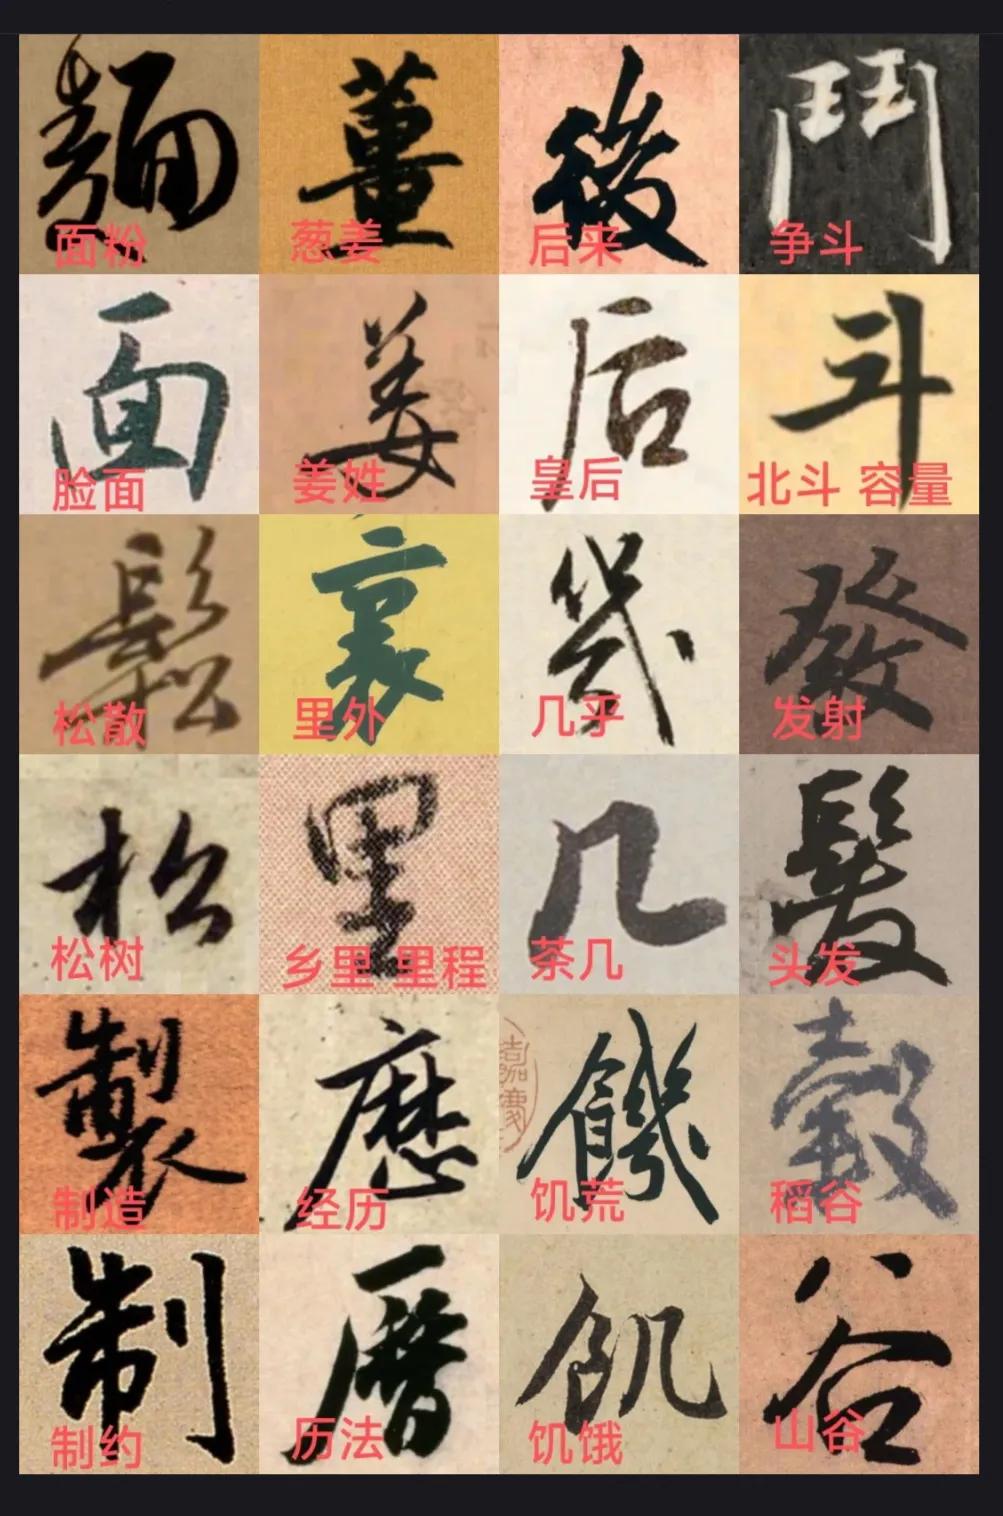 麵 薑 後 鬥
面粉 葱姜 后来 争斗
面 姜 后 斗
脸面 姜姓 皇后 北斗 容量
鬆 裏 幾 發
松散 里外 几乎 发射
松 里 几 髮
松树 乡里 里程 茶几 头发
製 歷 饑 穀
制造 经历 饥荒 稻谷
制 曆 飢 谷
制约 历法 饥饿 山谷